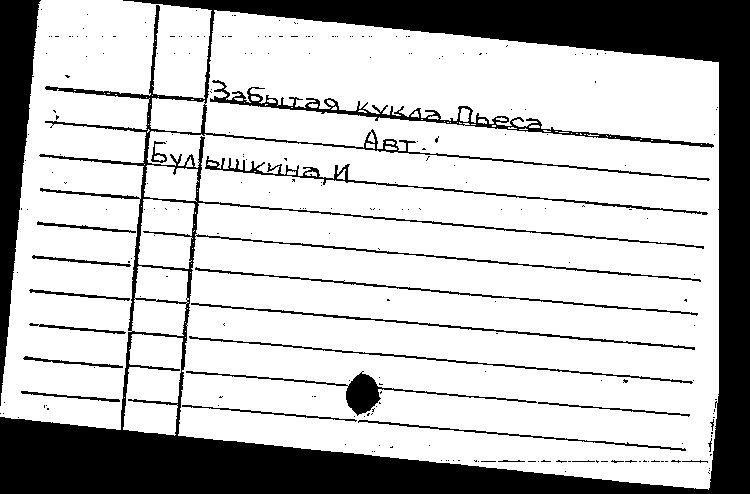 Забытая кукла. Пьеса.
Авт.:
Булышкина, И